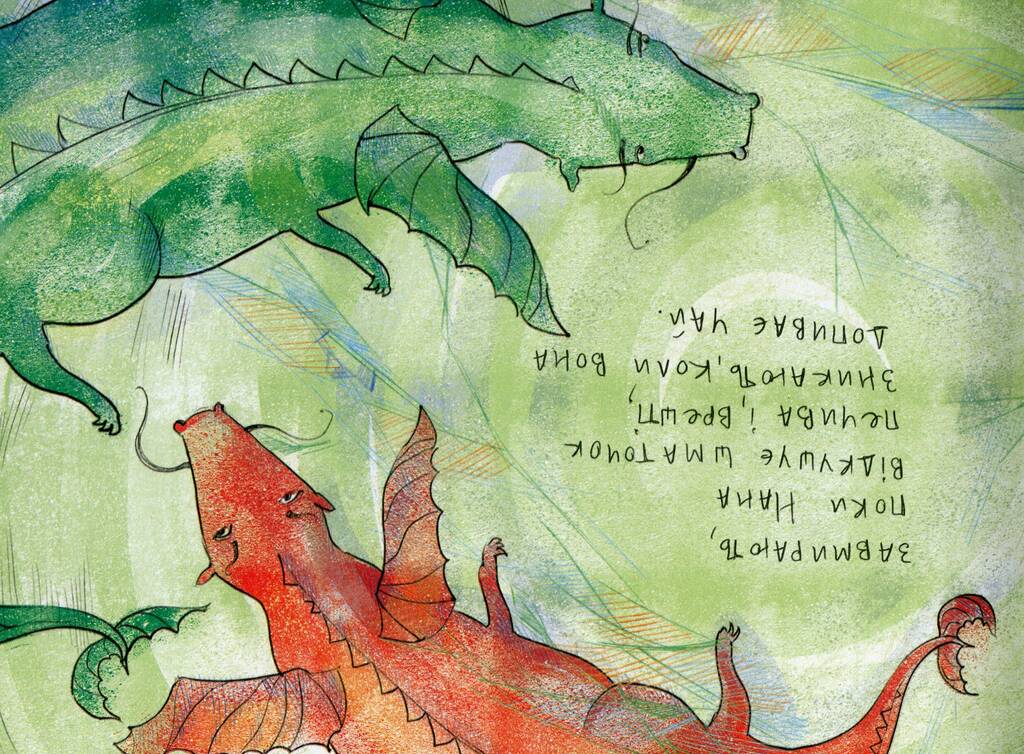 завмирають,
поки Нана
відкушує шматочок
печива і, врешті,
зникають, коли вона
допиває чай.